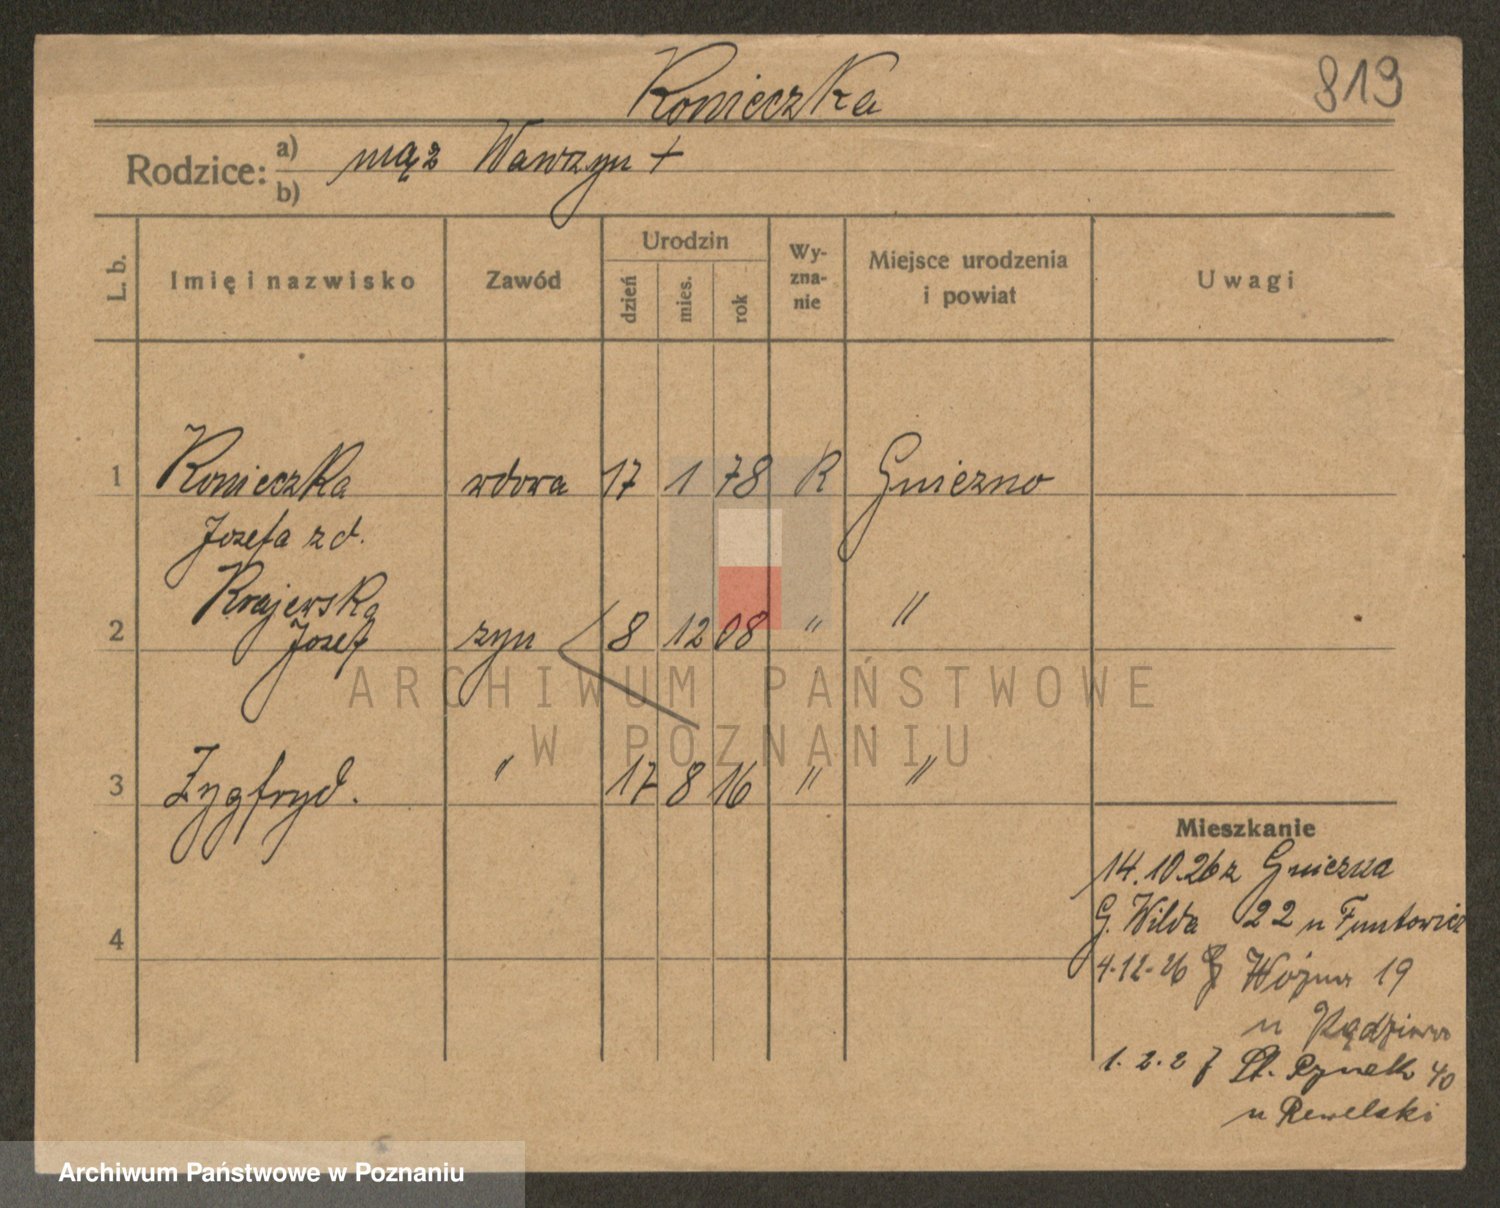 Konieczka
819
Rodzice: a) mąż Wawrzyn +
b)
L. b. Imię i nazwisko Zawód Urodzin dzień mies. rok Wyznanie Miejsce urodzenia i powiat Uwagi
1 Konieczka wdowa 17 1 78 R Gniezno
Jozefa z d.
Krajewska
2 Jozef syn 8 12 08 " "
3 Zygfryd. " 17 8 16 " "
Mieszkanie
14.10.26 z Gniezna
G. Wilda 22 u
4
4-12-26 19
u
1.2.27 St. Rynek 40
u Rewelski
ARCHIWUM PAŃSTWOWE
W POZNANIU
Archiwum Państwowe w Poznaniu